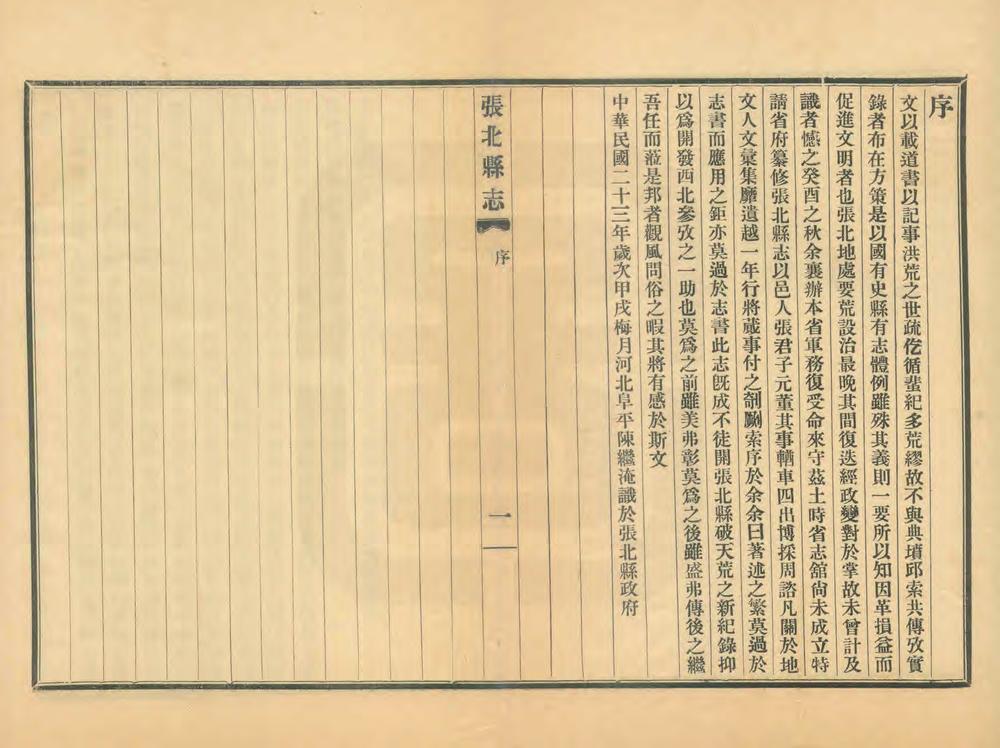 序
文以載道書以記事洪荒之世疏仡循蜚紀多荒繆故不與典墳邱索共傳攷實
錄者布在方策是以國有史縣有志體例雖殊其義則一要所以知因革損益而
促進文明者也張北地處要荒設治最晚其間復迭經政變對於掌故未曾計及
識者憾之癸酉之秋余襄辦本省軍務復受命來守茲土時省志舘尙未成立特
請省府纂修張北縣志以邑人張君子元董其事輶車四出博採周諮凡關於地
文人文彙集靡遺越一年行將蕆事付之剞劂索序於余余曰著述之繁莫過於
志書而應用之鉅亦莫過於志書此志旣成不徒開張北縣破天荒之新紀錄抑
以爲開發西北參攷之一助也莫爲之前雖美弗彰莫爲之後雖盛弗傳後之繼
吾任而蒞是邦者觀風問俗之暇其將有感於斯文
中華民國二十三年歲次甲戌梅月河北阜平陳繼淹識於張北縣政府
張北縣志
序
一